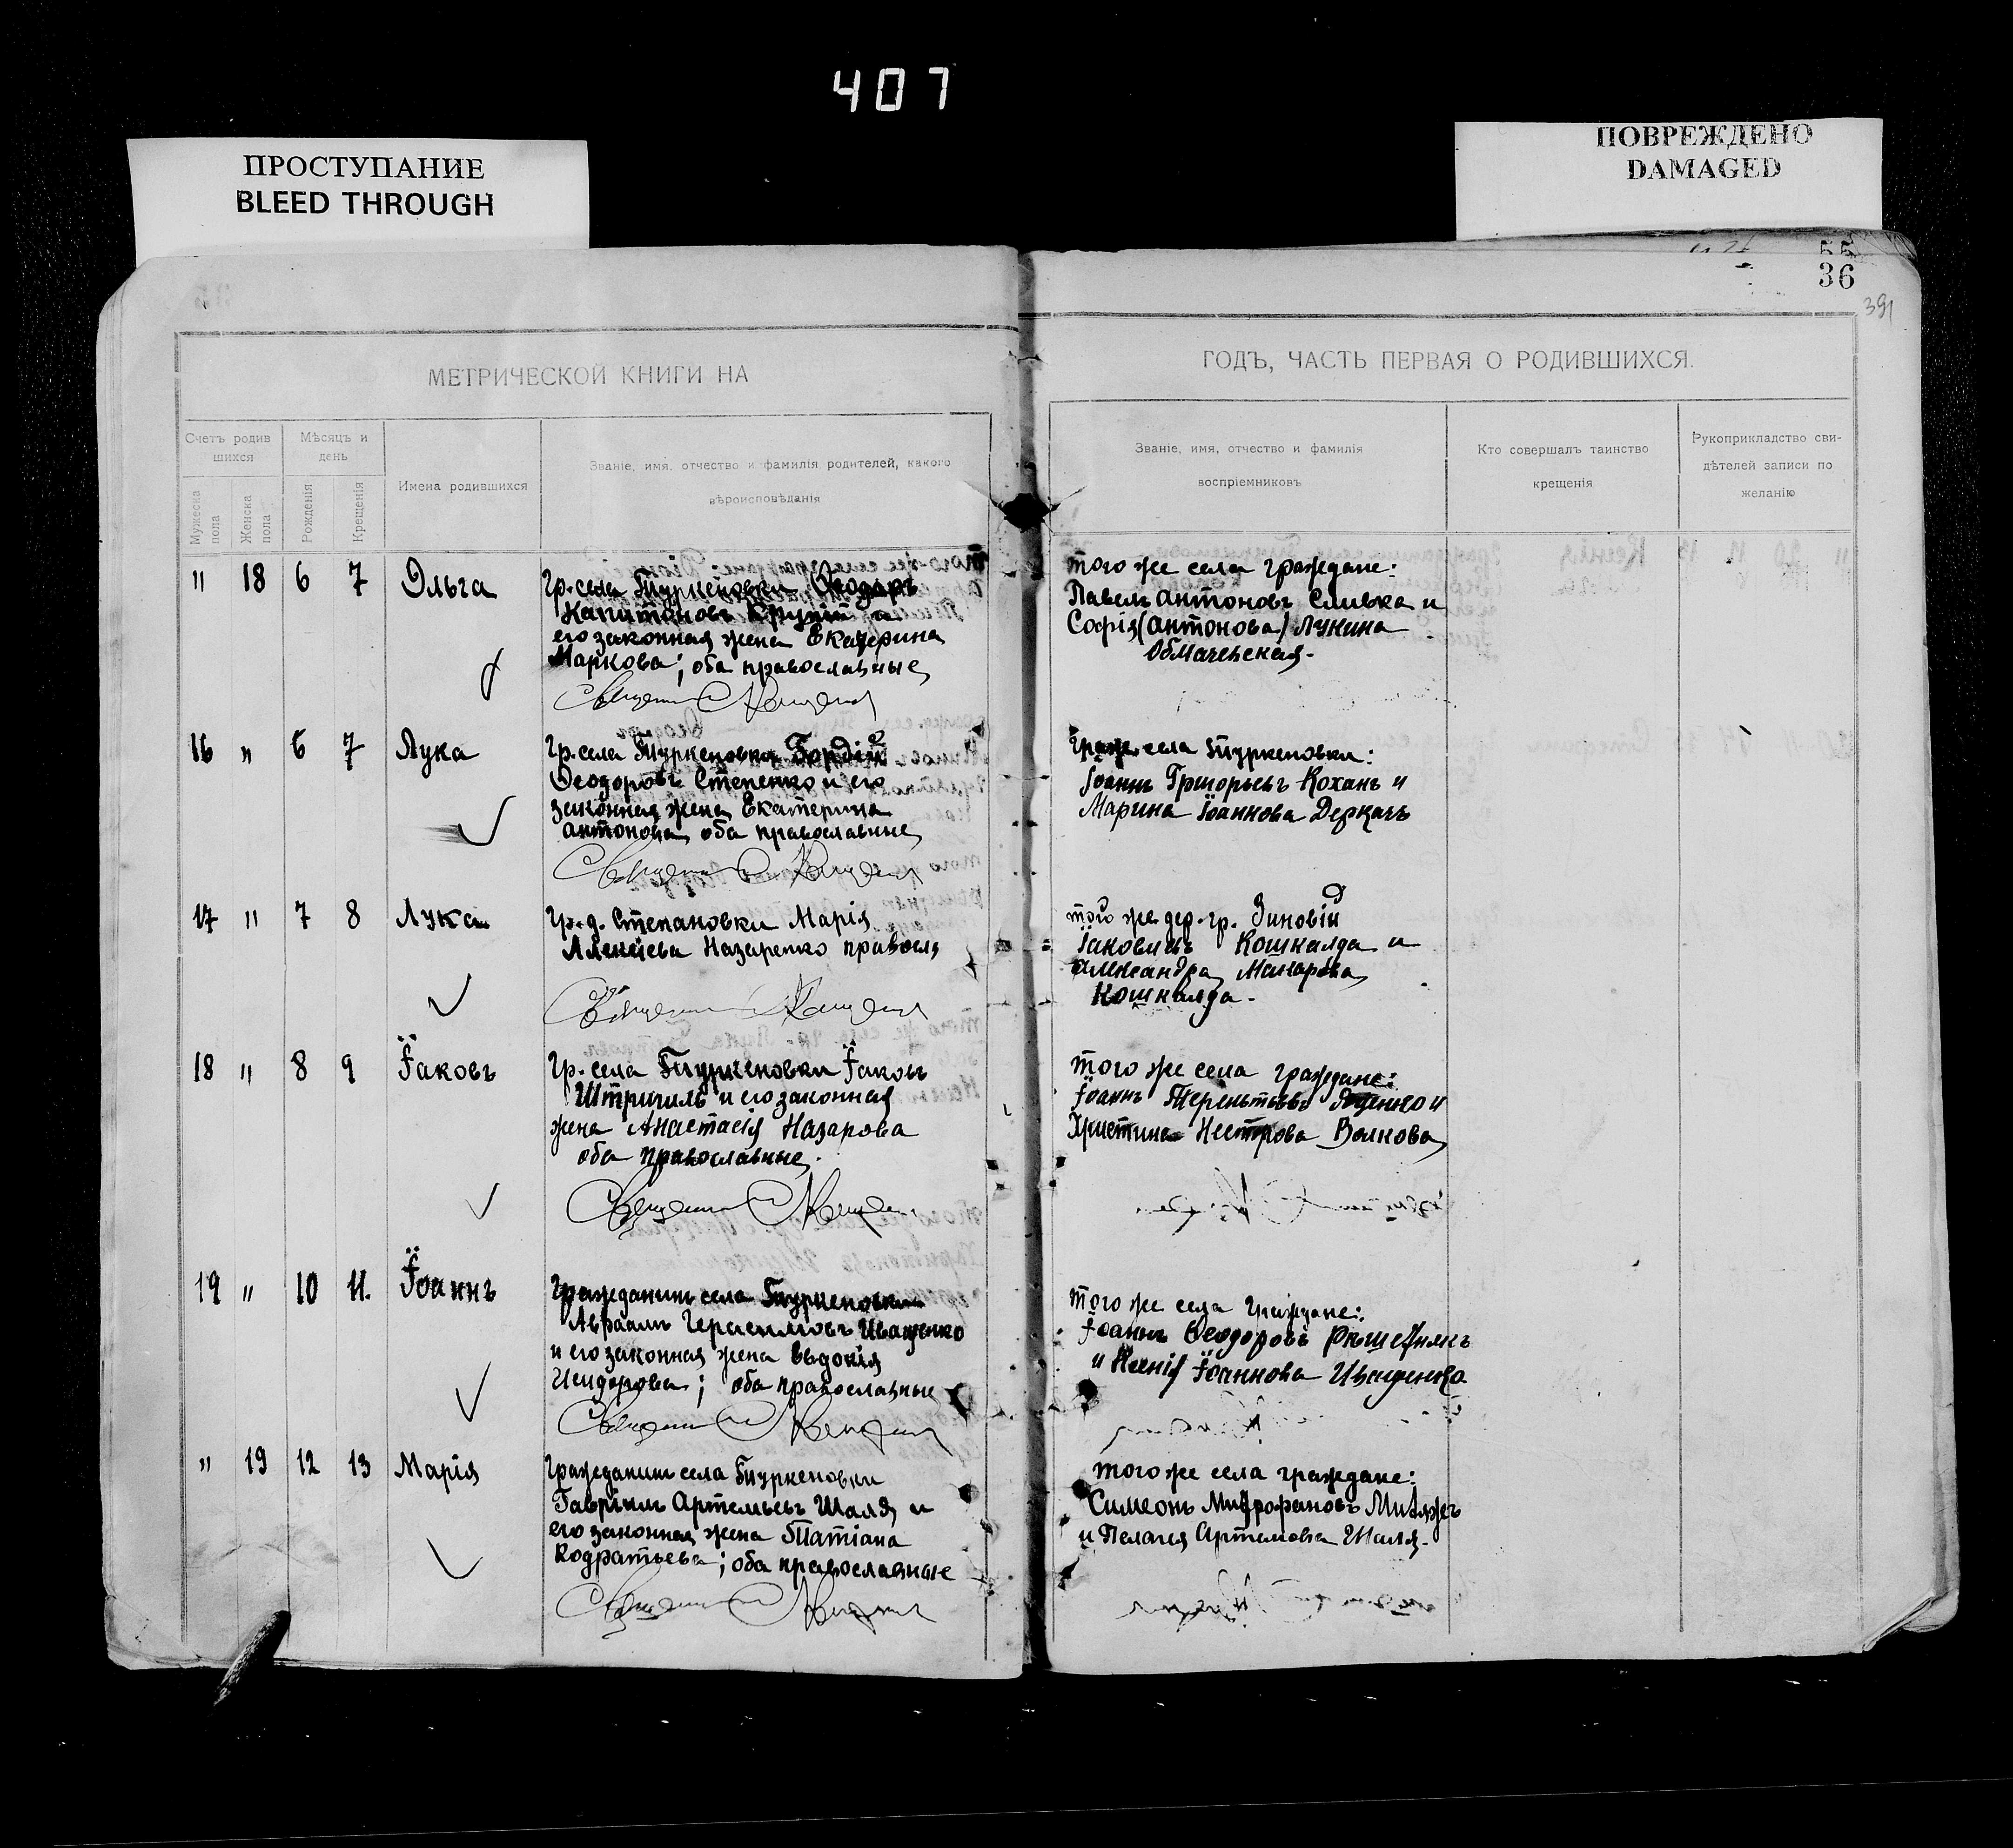 407
ПРОСТУПАНИЕ
BLEED THROUGH
ПОВРЕЖДЕНО
DAMAGED
55
36
391
МЕТРИЧЕСКОЙ КНИГИ НА
ГОДЪ, ЧАСТЬ ПЕРВАЯ О РОДИВШИХСЯ.
Счетъ родив
шихся
Мѣсяцъ и
день
Мужеска пола
Женска пола
Рожденія
Крещенія
Имена родившихся
Званіе, имя, отчество и фамилія родителей, какого
вѣроисповѣданія
Званіе, имя, отчество и фамилія
воспріемниковъ
Кто совершалъ таинство
крещенія
Рукоприкладство сви-
дѣтелей записи по
желанію
" 18 6 7 Ольга
Гр. села Туркеновки Ѳеодоръ
Капитоновъ Крупій и
его законная жена Екатерина
Маркова; оба православные
того же села граждане:
Павелъ Антоновъ Сливка и
Софія (Антонова) Лукина
16 " 6 7 Лука
Гр. села Туркеновки Гордій
Ѳеодоровъ Степенко и его
законная жена Екатерина
Антонова, оба православные
Граж. села Туркеновки:
Іоаннъ Григорьевъ Коханъ и
Марина Іоаннова Деркачъ
17 " 7 8 Лука
Гр. д. Степановки Марія
Алексѣева Назаренко правосл
того же дер. гр. Зиновій
Іаковлевъ Кошкалда и
Александра Макарова
Кошкалда.
18 " 8 9 Іаковъ
Гр. села Туркеновки Іаковъ
Штригиль и его законная
жена Анастасія Назарова
оба православные.
того же села граждане:
Іоаннъ Терентьевъ Яценко и
Христина Несторова Волкова
19 " 10 11. Іоаннъ
Гражданинъ села Туркеновки
Авраамъ Герасимовъ Иващенко
и его законная жена Евдокія
Исидорова; оба православные
того же села граждане:
Іоаннъ Ѳеодоровъ
и Ксенія Іоаннова Иващенкова
" 19 12 13 Марія
Гражданинъ села Туркеновки
Гавріилъ Артемьевъ Шаля и
его законная жена Татіана
Кодратьева; оба православные
того же села граждане:
Симеонъ Митрофановъ
и Пелагея Артемова Шаля.